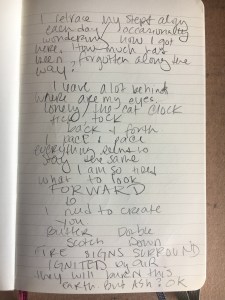 I retrace my steps along
each day / occasionally
wondering how I got
here. How much has
been forgotten along the
way?
I have a lot behind
where are my eyes
lonely / the cat clock
tick tock
back & forth
back & pace
everything seems to
stay the same
I am so tired
what to look
FORWARD
to
I need to create
you
Double
Scotch Down
FIRE SIGNS SURROUND
IGNITED by AIR
they will burn this
Earth but Ash? OK